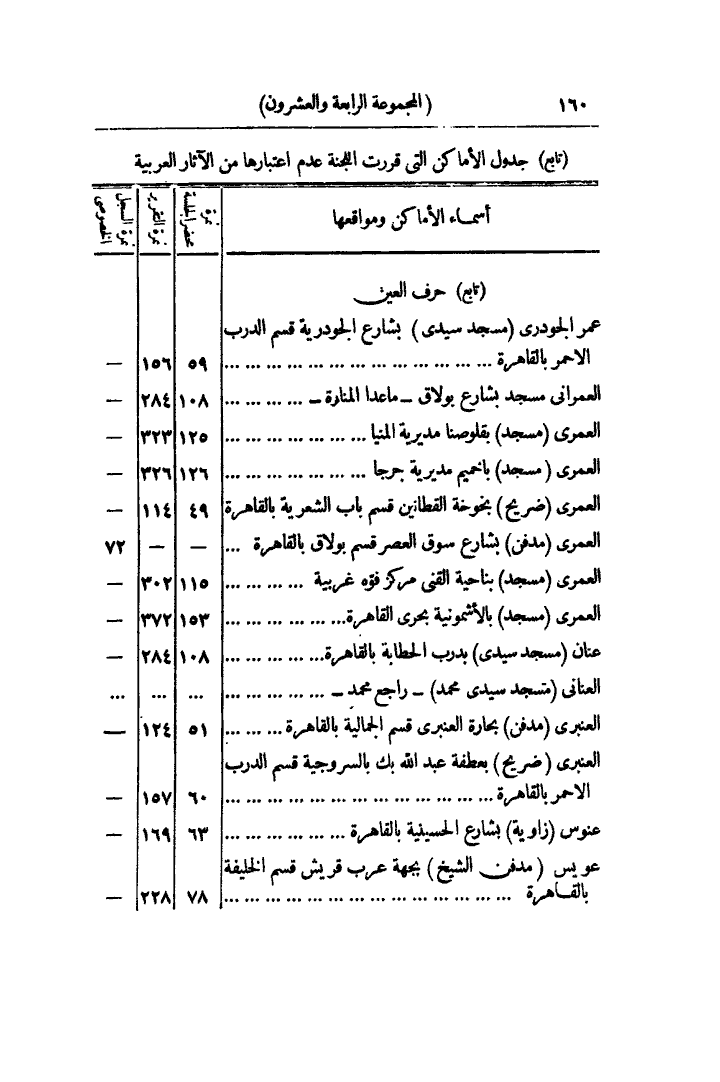 ١٦٠ (المجموعة الرابعة والعشرون)
(تابع) جدول الأماكن التى قررت اللجنة عدم اعتبارها من الآثار العربية
أسماء الأماكن ومواقعها | نمرة محضر الجلسة | نمرة التقرير | نمرة السجل الخصوصى
(تابع) حرف العين
عمر الجودرى (مسجد سيدى) بشارع الجودرية قسم الدرب
الاحمر بالقاهرة ... ... ... ... ... ... ... ... ... ... ... ... ... ٥٩ ١٥٦ —
العمرانى مسجد بشارع بولاق ــ ماعدا المنارة ــ ... ... ... ... ١٠٨ ٢٨٤ —
العمرى (مسجد) بقلوصنا مديرية المنيا ... ... ... ... ... ... ... ١٢٥ ٣٢٣ —
العمرى (مسجد) باخميم مديرية جرجا ... ... ... ... ... ... ... ١٢٦ ٣٢٦ —
العمرى (ضريح) بخوخة القطانين قسم باب الشعرية بالقاهرة ٤٩ ١١٤ —
العمرى (مدفن) بشارع سوق العصر قسم بولاق بالقاهرة ... — — ٧٢
العمرى (مسجد) بناحية القنى مركز فوّه غربية ... ... ... ... ١١٥ ٣٠٢ —
العمرى (مسجد) بالأشمونية بحرى القاهرة... ... ... ... ... ... ١٥٣ ٣٧٢ —
عنان (مسجد سيدى) بدرب الحطابة بالقاهرة... ... ... ... ... ١٠٨ ٢٨٤ —
العنانى (مسجد سيدى محمد) ــ راجع محمد ــ ... ... ... ... ... ... ... ...
العنبرى (مدفن) بحارة العنبرى قسم الجمالية بالقاهرة ... ... ... ٥١ ١٢٤ —
العنبرى (ضريح) بعطفة عبد الله بك بالسروجية قسم الدرب
الاحمر بالقاهرة ... ... ... ... ... ... ... ... ... ... ... ... ... ٦٠ ١٥٧ —
عنوس (زاوية) بشارع الحسينية بالقاهرة ... ... ... ... ... ... ٦٣ ١٦٩ —
عويس (مدفن الشيخ) بجهة عرب قريش قسم الخليفة
بالقاهرة ... ... ... ... ... ... ... ... ... ... ... ... ... ... ٧٨ ٢٢٨ —